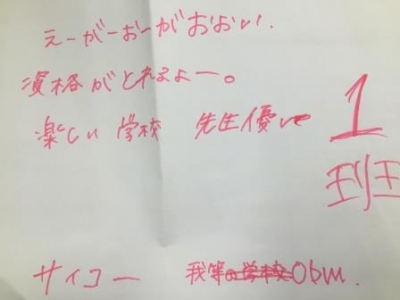 えーがーおーがおおい.
資格がとれるよー。
楽しい 学校 先生優しい
1
班
サイコー 我等の学校Obm.